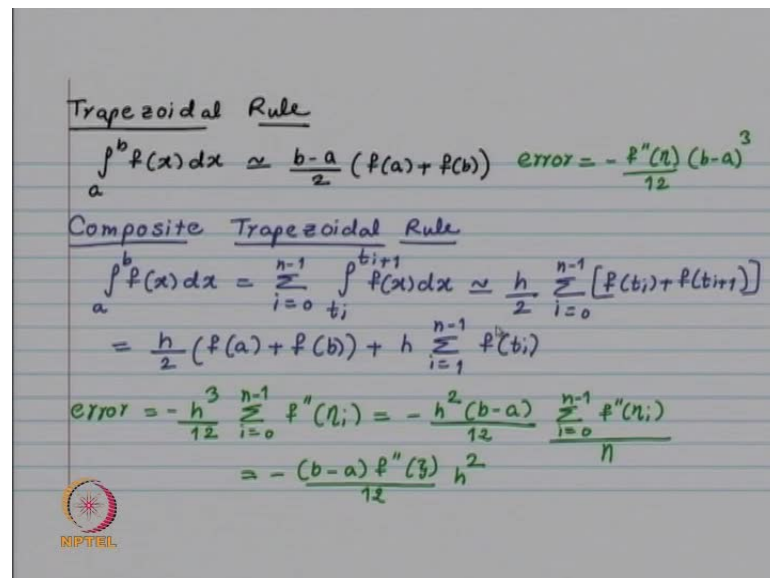 Trapezoidal Rule
∫_a^b f(x) dx ≃ (b-a)/2 (f(a) + f(b))   error = - f''(η)/12 (b-a)^3
Composite Trapezoidal Rule
∫_a^b f(x) dx = Σ_{i=0}^{n-1} ∫_{t_i}^{t_{i+1}} f(x) dx ≃ h/2 Σ_{i=0}^{n-1} [f(t_i) + f(t_{i+1})]
= h/2 (f(a) + f(b)) + h Σ_{i=1}^{n-1} f(t_i)
error = - h^3/12 Σ_{i=0}^{n-1} f''(η_i) = - h^2 (b-a)/12 (Σ_{i=0}^{n-1} f''(η_i))/n
= - (b-a) f''(ξ)/12 h^2
NPTEL